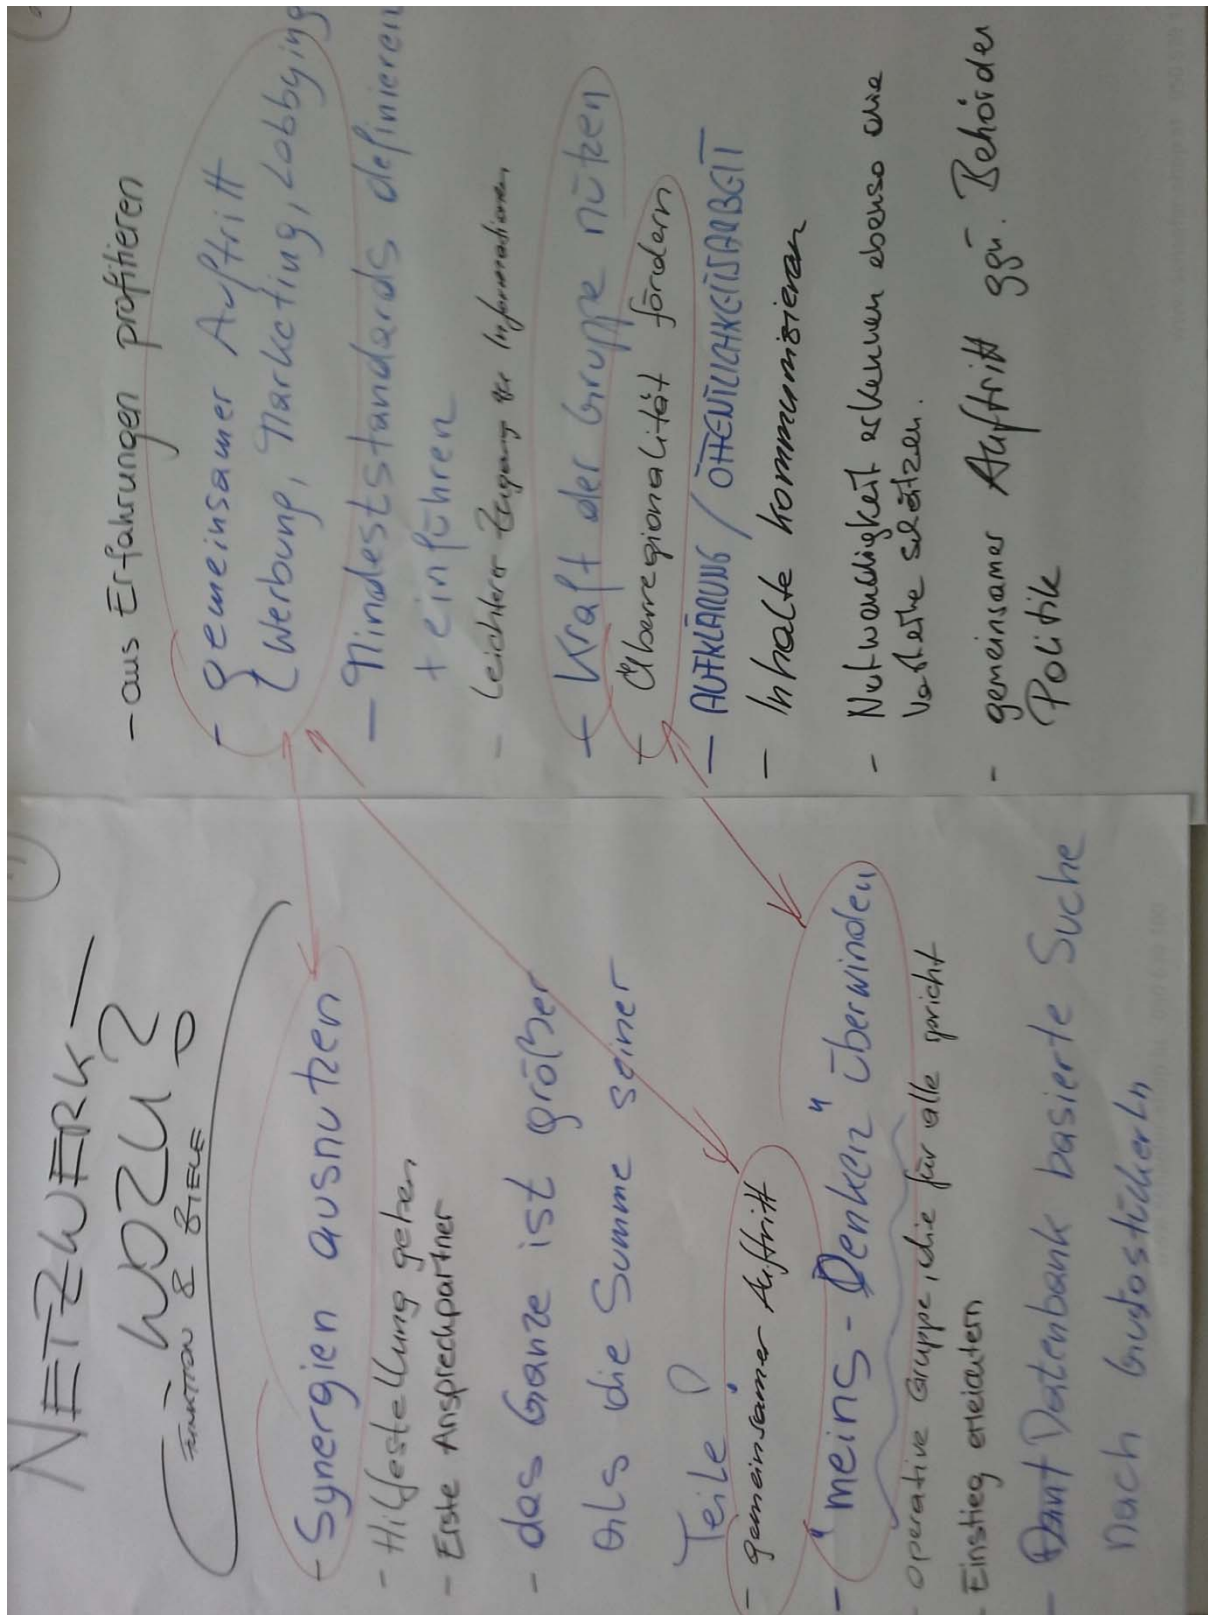 NETZWERK –
WOZU?
FUNKTION & ZIELE
- Synergien ausnutzen
- Hilfestellung geben
- Erste Ansprechpartner
- das Ganze ist größer
als die Summe seiner
Teile!
- gemeinsamer Auftritt
- "meins - Denken" überwinden
- operative Gruppe, die für alle spricht
- Einstieg erleichtern
- Datenbank basierte Suche
nach Gustostückerln
- aus Erfahrungen profitieren
- gemeinsamer Auftritt
{Werbung, Marketing, Lobbying
- Mindeststandards definieren
+ einführen
- Leichterer Zugang zur Informationen
+ Kraft der Gruppe nützen
+ Überregionalität fördern
- AUFKLÄRUNG / ÖFFENTLICHKEITSARBEIT
- Inhalte kommunizieren
- Notwendigkeit erkennen ebenso die
Vorteile schätzen.
- gemeinsamer Auftritt ggü. Behörden
Politik